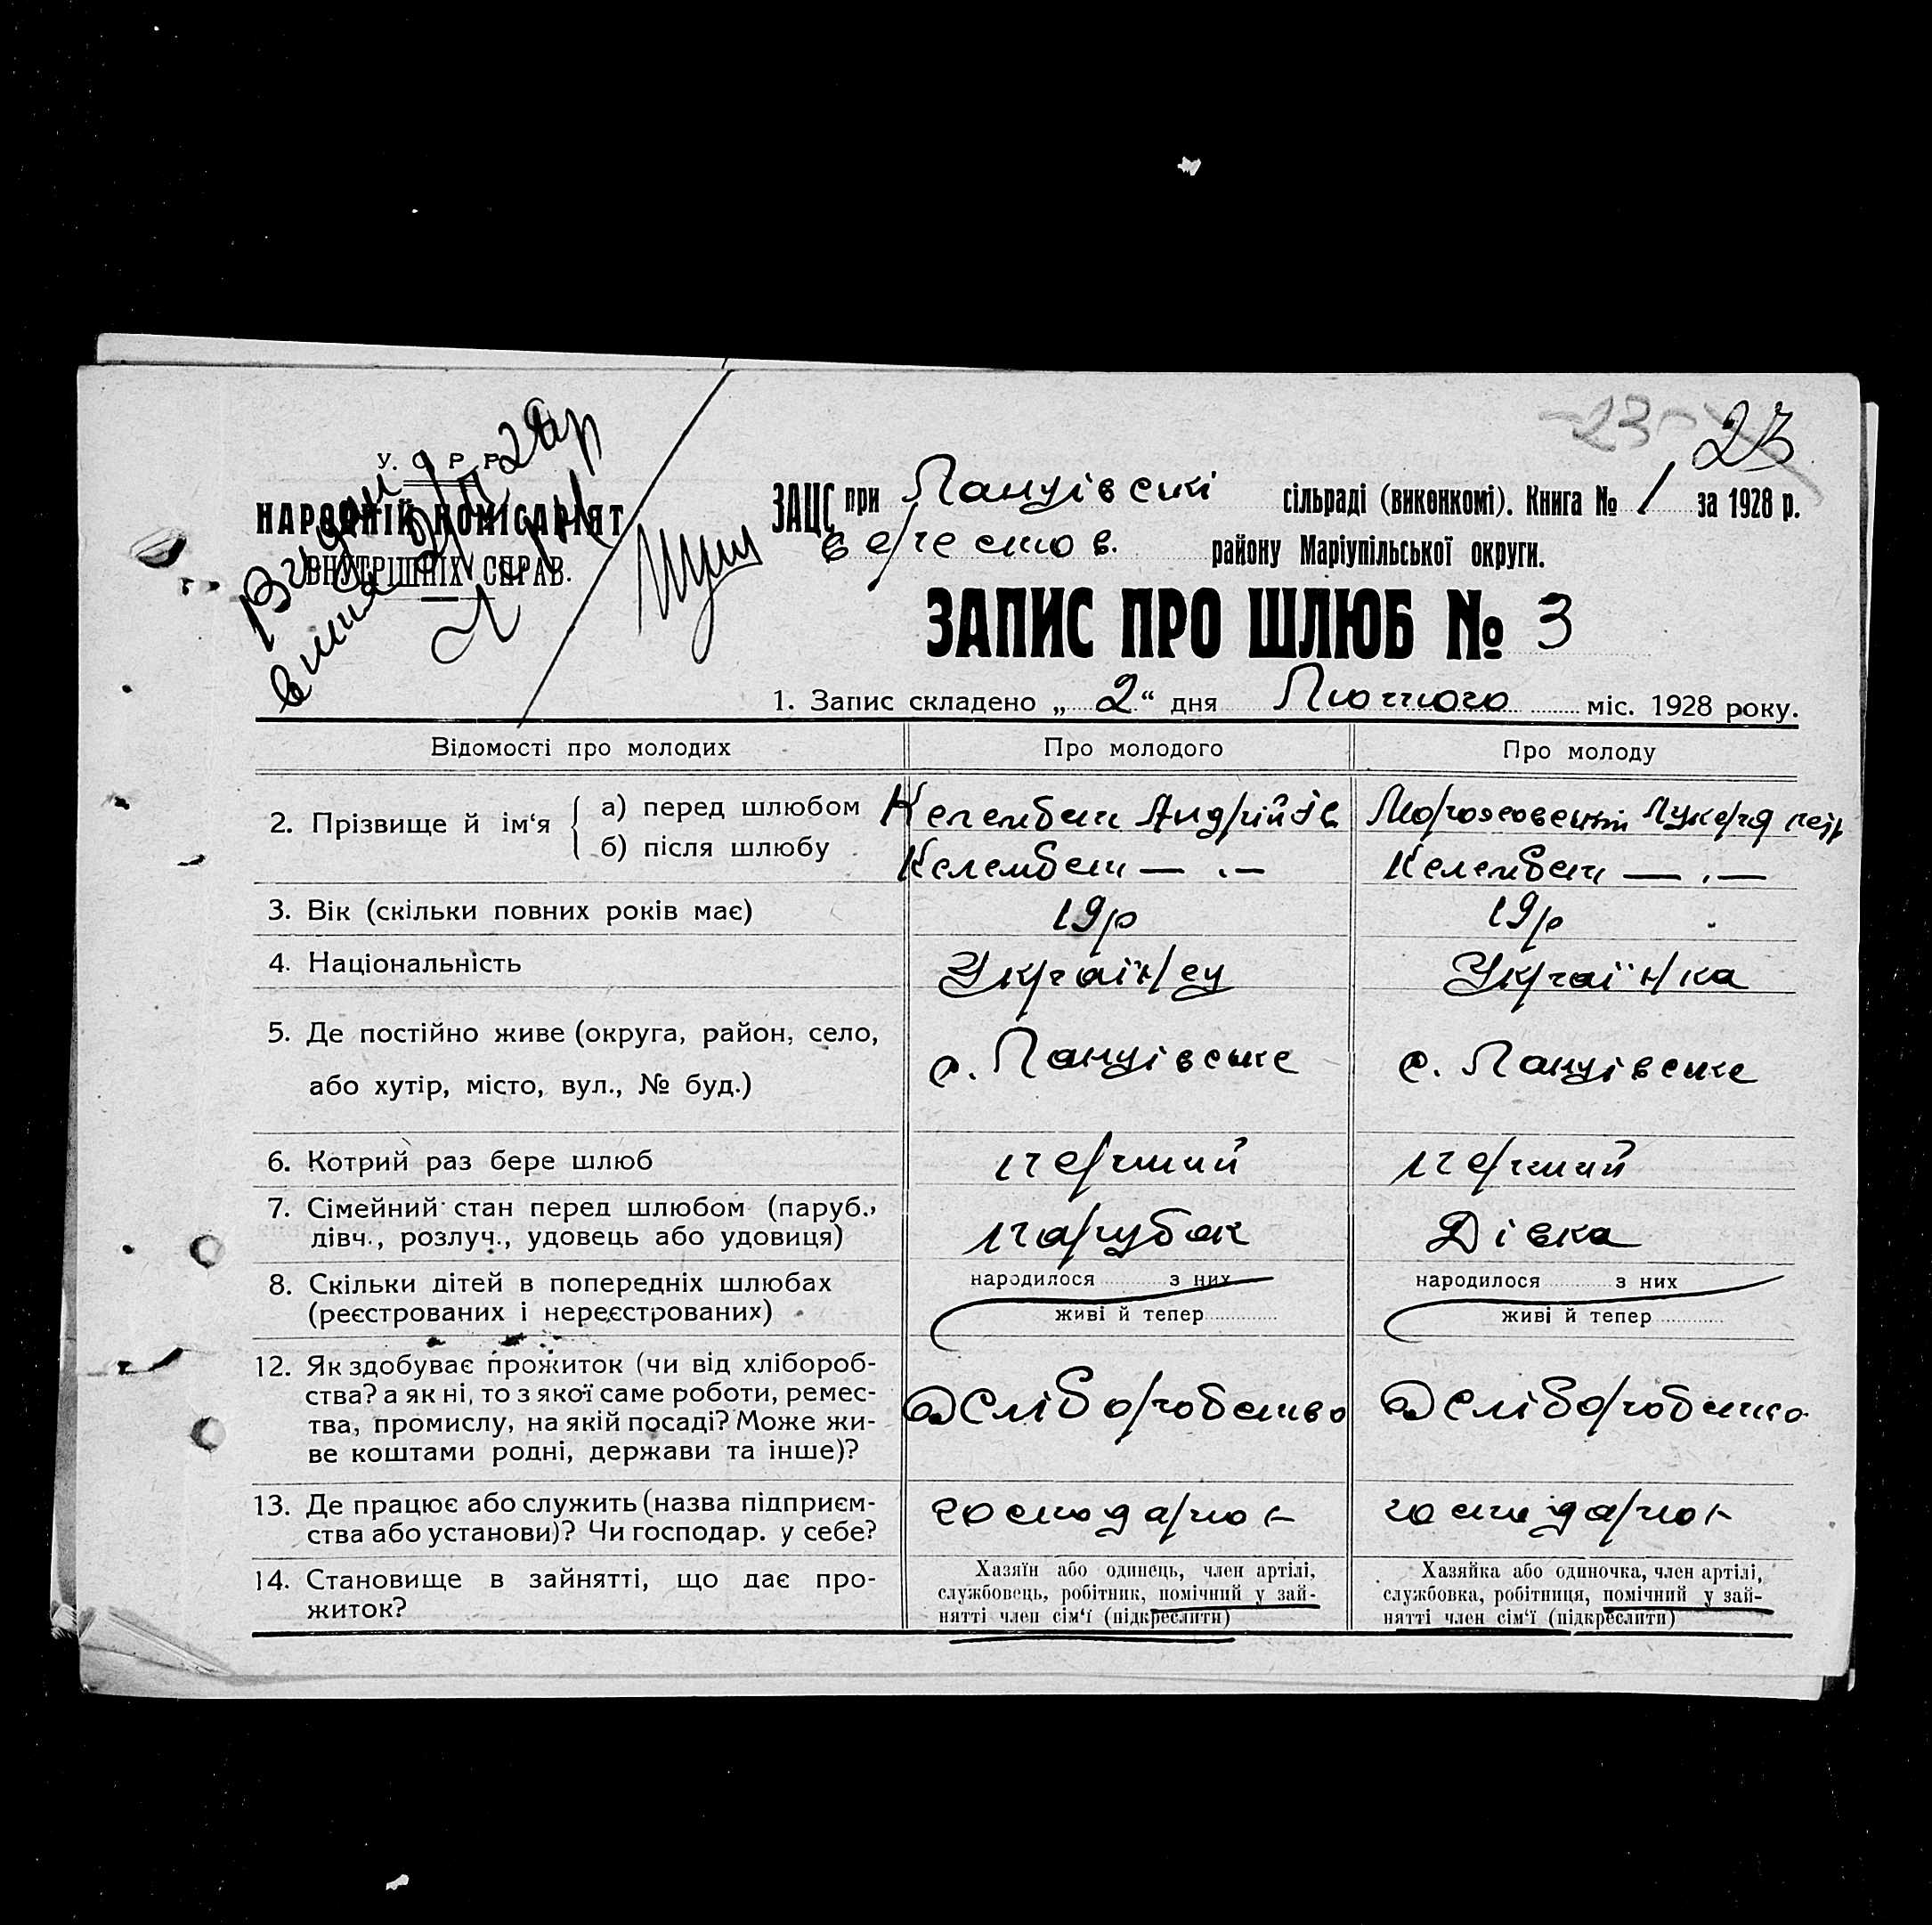 23
23
У. С. Р. Р.
НАРОДНІЙ КОМІСАРІЯТ
ВНУТРІШНІХ СПРАВ.
ЗАЦС при Ланцівські сільраді (виконкомі). Книга № 1 за 1928 р.
району Маріупільської округи.
ЗАПИС ПРО ШЛЮБ № 3
1. Запис складено „2“ дня Лютого міс. 1928 року.
Відомості про молодих Про молодого Про молоду
2. Прізвище й ім‘я { а) перед шлюбом Келембет Андрій Ів Лукеря петр
б) після шлюбу Келембет — . — Келембет — . —
3. Вік (скільки повних років має) 19р 19р
4. Національність Україн/ец Україн/ка
5. Де постійно живе (округа, район, село, с. Ланцівське с. Ланцівське
або хутір, місто, вул., № буд.)
6. Котрий раз бере шлюб перший перший
7. Сімейний стан перед шлюбом (паруб., парубок Дівка
дівч., розлуч., удовець або удовиця)
8. Скільки дітей в попередніх шлюбах народилося з них народилося з них
(реєстрованих і нереєстрованих) живі й тепер живі й тепер
12. Як здобуває прожиток (чи від хлібороб-
ства? а як ні, то з якої саме роботи, ремес- Хліборобство Хліборобство
тва, промислу, на якій посаді? Може жи-
ве коштами родні, держави та інше)?
13. Де працює або служить (назва підприєм- господарює господарює
ства або установи)? Чи господар. у себе?
14. Становище в зайнятті, що дає про- Хазяїн або одинець, член артілі, Хазяйка або одиночка, член артілі,
житок? службовець, робітник, помічний у зай- службовка, робітниця, помічний у зай-
нятті член сім‘ї (підкреслити) нятті член сім‘ї (підкреслити)